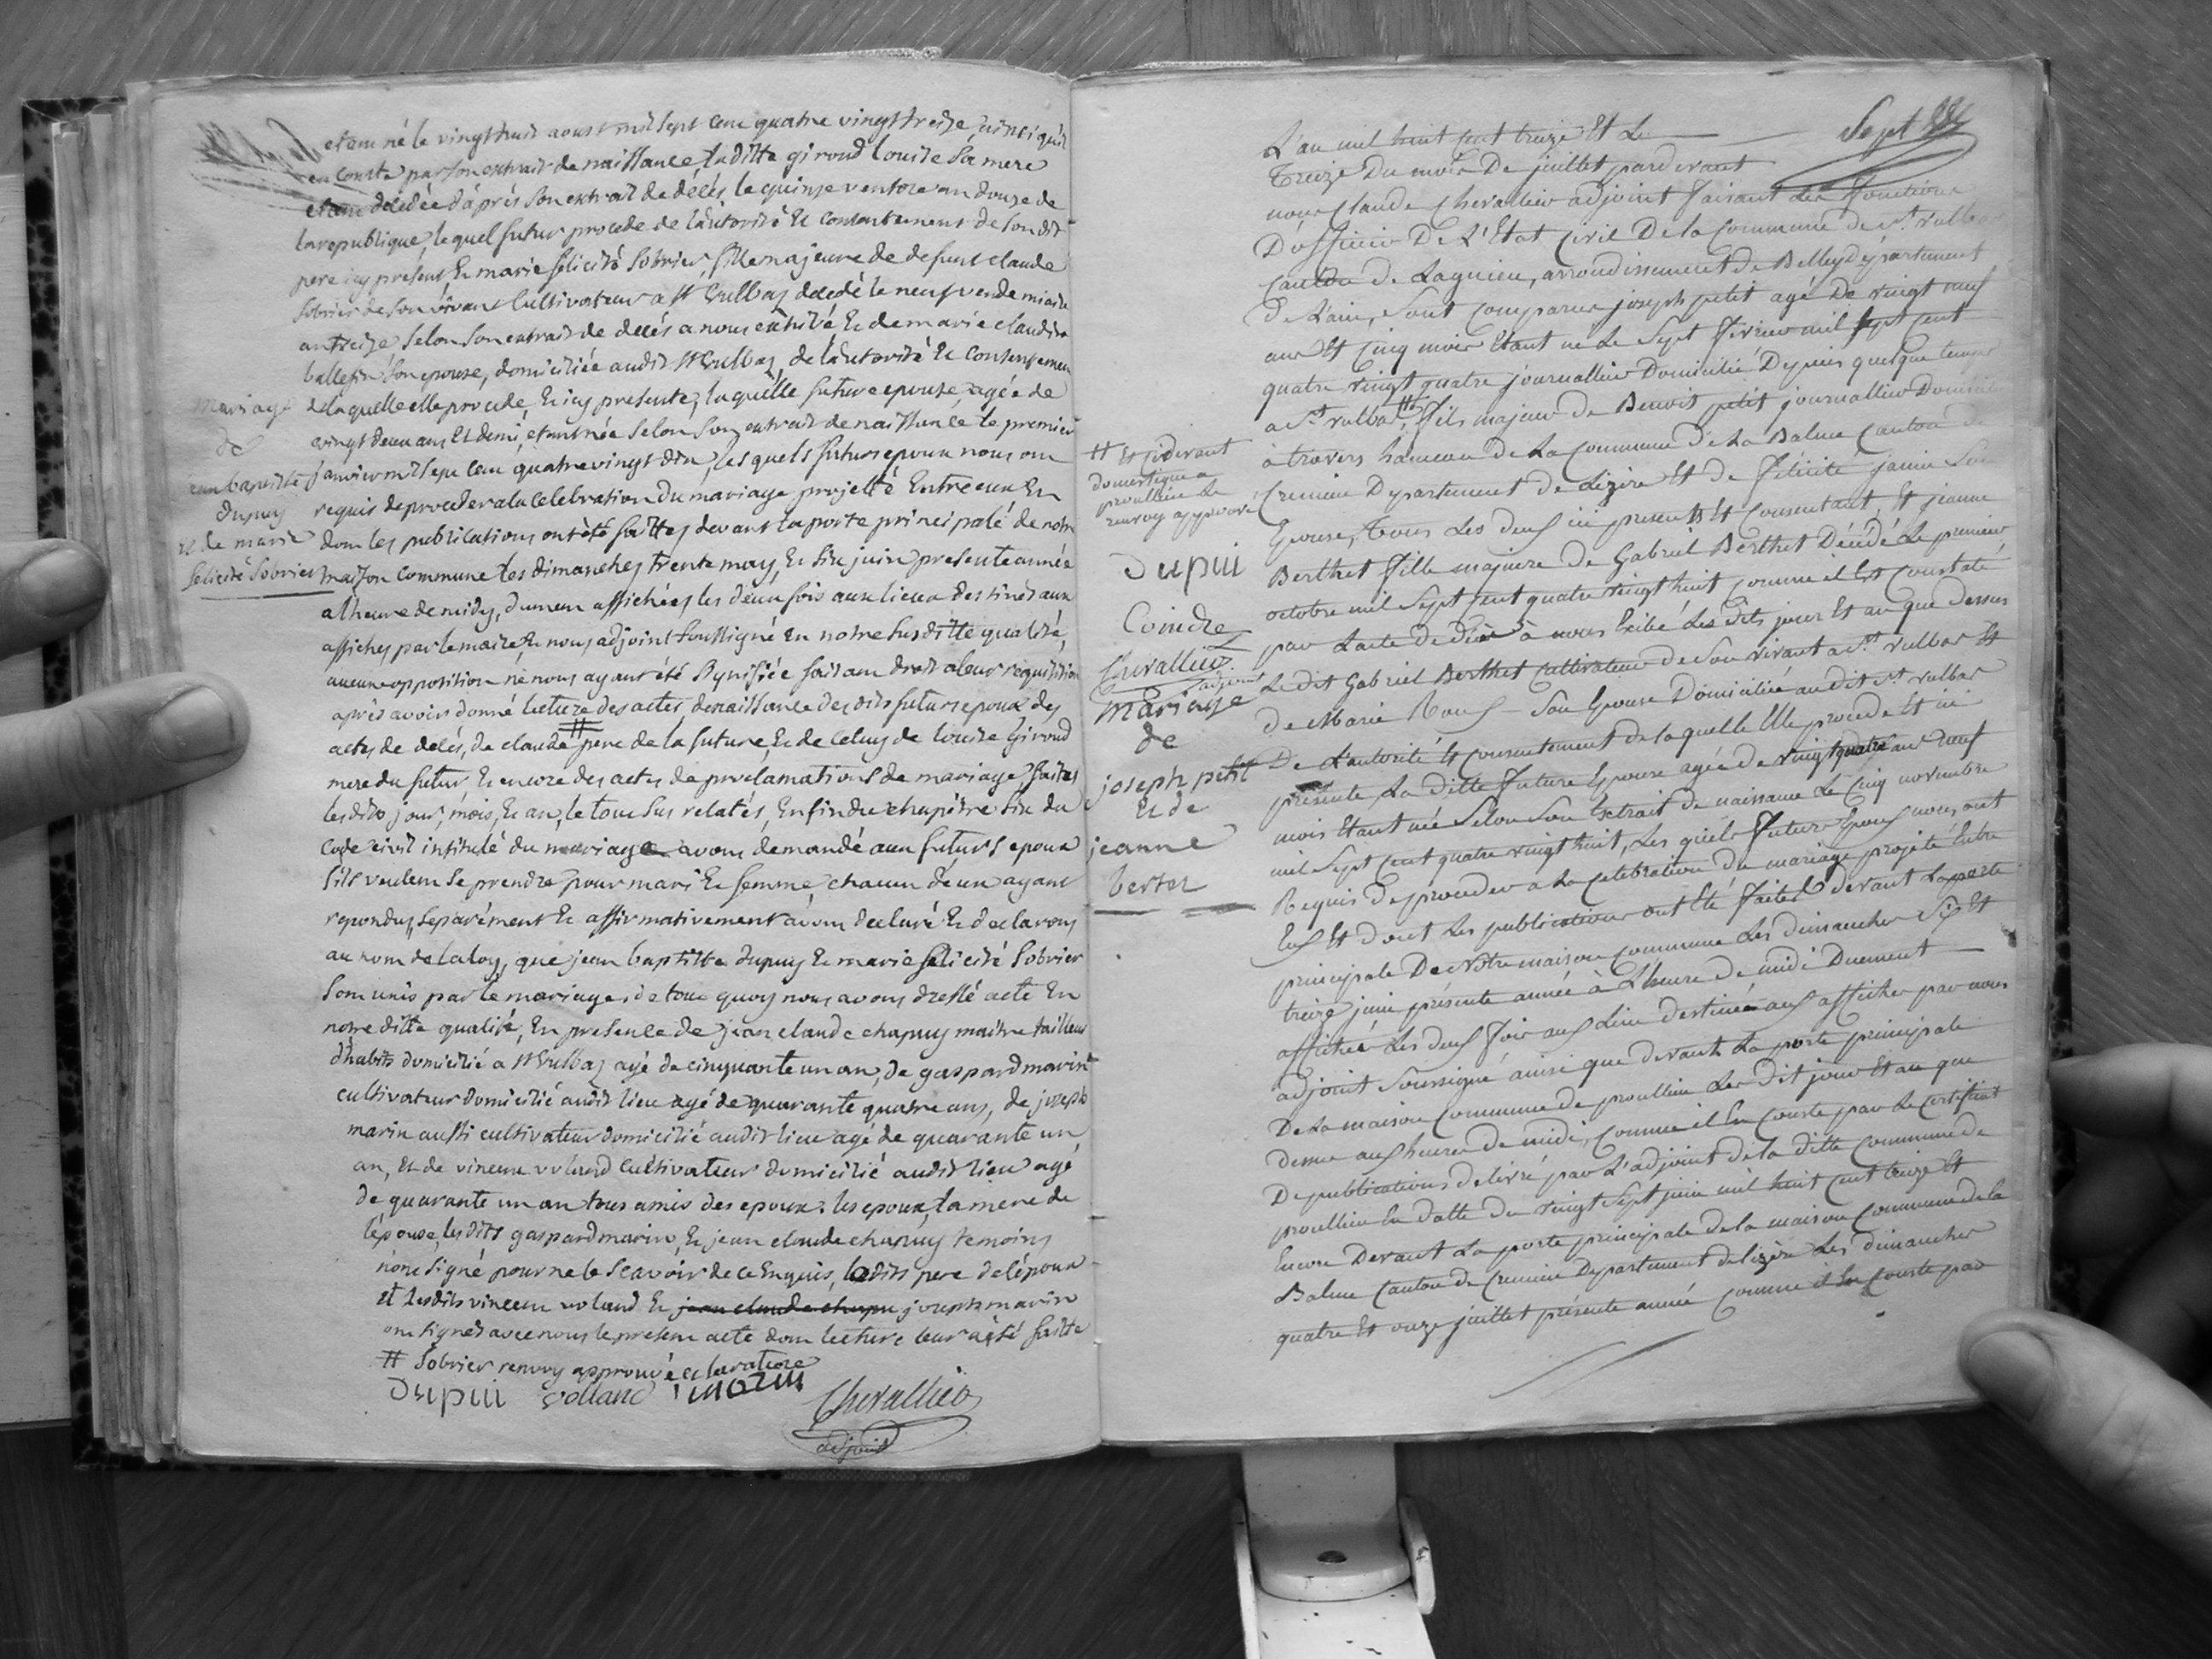 etant né le vingt huit aoust mil sept cent quatre vingt treize ainsi qu'il
en conste par son extrait de naissance la ditte giroud louise sa mere
etant décédée d'après son extrait de décés le quinze ventose an douze de
la republique, lequel futur procede de l'autorité et consentement de son dit
pere icy présent, Et marie felicité Sobrier, fille majeure de defunt claude
Sobrier de son vivant Cultivateur a St Vulbaz décédé le neuf vendemiaire
an treize selon son extrait de décés a nous exhibé Et de marie claudine
ballefin son epouse, domiciliée audit St Vulbaz, de l'autorité Et consentement
de laquelle elle procede, Et icy presente, laquelle future epouse agée de
vingt deux ans Et demi, etant née selon son extrait de naissance le premier
janvier mil sept cent quatre vingt dix, lesquels futurs epoux nous ont
requis de proceder a la celebration du mariage projetté Entre eux En
dont les publications ont été faittes devant la porte principale de notre
maison commune les dimanches trente may, Et six juin presente année
a lheure de midy, dument affichées les deux fois aux lieux destinés aux
affiches par le maire Et nous adjoint soussigné En notre susditte qualité,
aucune opposition ne nous ayant été signifiée faisant droit a leur requisition
après avoir donné lecture des actes de naissance des dits futurs epoux des
actes de décés, de claude # pere de la future, Et de celuy de louise Giroud
mere du futur, Et encore des actes de proclamations de mariage faites
les dits jour, mois, Et an, le tout sus relatés, Enfin du chapitre six du
Code civil institulé du mariage avons demandé aux futurs epoux
s'ils veulent se prendre pour mari Et femme, chacun d'eux ayant
repondu, separément Et affirmativement avons declaré Et declarons
au nom de la loy, que jean baptiste dupuy Et marie felicité Sobrier
sont unis par le mariage, de tout quoy nous avons dressé acte En
notre ditte qualité, En presence de jean claude chapuy maitre tailleur
d'habits domicilié a St Vulbaz agé de cinquante un an, de gaspard marin
cultivateur domicilié audit lieu agé de quarante quatre ans, de joseph
marin aussi cultivateur domicilié audit lieu agé de quarante un
an, Et de vincent voland cultivateur domicilié audit lieu agé
de quarante un an tous amis des epoux. les epoux, la mere de
l'épouse, les dits gaspard marin, Et jean claude chapuy temoins
n'ont signé pour ne le scavoir de ce Enquis, le dits pere de lépoux
et les dits vincent voland Et jean claude chapu joseph marin
ont signés avec nous le present acte dont lecture leur a été faitte
# Sobrier renvoy approuvé Et la rature
Dupui volland marin Chevallier
adjoint
Mariage
de
jean baptiste
dupuy
Et de marie
felicité Sobrier
Sept
L'an mil huit cent treize Et Le
Treize Du mois De juillet pardevant
nous Claude Chevallier adjoint faisant Les fonctions
D'officier De L'Etat Civil De la Commune de St vulbas
Canton de Lagnieu, arrondissement de Belley département
de Lain, Sont Comparus joseph petit agé De vingt neuf
ans Et Cinq mois Etant né Le Sept février mil sept cent
quatre vingt quatre journallier Domicilié Depuis quelque temps
a St vulbas, # fils majeur de Benoit petit journallier Domicilié
à travers hameau de La Commune de La Balme Canton de
Cremieu Departement de Lizère Et de félicité janin Son
Epouse, Tous Les deux ici presents Et Consentant, Et jeanne
Berthet fille majeure de Gabriel Berthet Décédé Le premier
octobre mil Sept Cent quatre vingt huit comme il Est Constaté
par Lacte de décè à nous Exibé Les dits jour Et an que dessus
Le dit Gabriel Berthet Cultivateur de Son vivant a St vulbas Et
de Marie Roux Son Epouse Domiciliée audit St vulbas
De Lautorité Et Consentement de laquelle Elle procede Et ici
présente, La ditte future Epouse agée de vingt quatre ans neuf
mois Etant née Selon Son Extrait de naissance Le Cinq novembre
mil Sept Cent quatre vingt huit, Les quiels futurs Epoux nous ont
Requis De proceder a La Celebration du mariage projeté Entre
Eux Et dont Les publications ont Eté faites devant La porte
principale De Notre maison Commune Les dimanches Six Et
treize juin présente année à L'heure de midi Duement
affichée Les deux fois aux Lieu destinés aux affiches par nous
adjoint Soussigné ainsi que devant La porte principale
De La maison Commune de proullieu Les dit jour Et an que
dessus aux heures de midi, Comme il En Conste par Le Certifficat
De publications delivré par L'adjoint de la ditte Commune de
proullieu En datte du vingt Sept juin mil huit Cent treize Et
Encore Devant La porte principale de la maison Commune de la
Balme Canton de Cremieu Departement de lizère Les dimanches
quatre Et onze juillet présente année Comme il En Conste par
# Et Cidevant
domestique a
proullieu Le
renvoy approuvé
Dupui
Coindre
Chevallier
adjoint
Mariage
de
joseph petit
Et de
jeanne
bertet